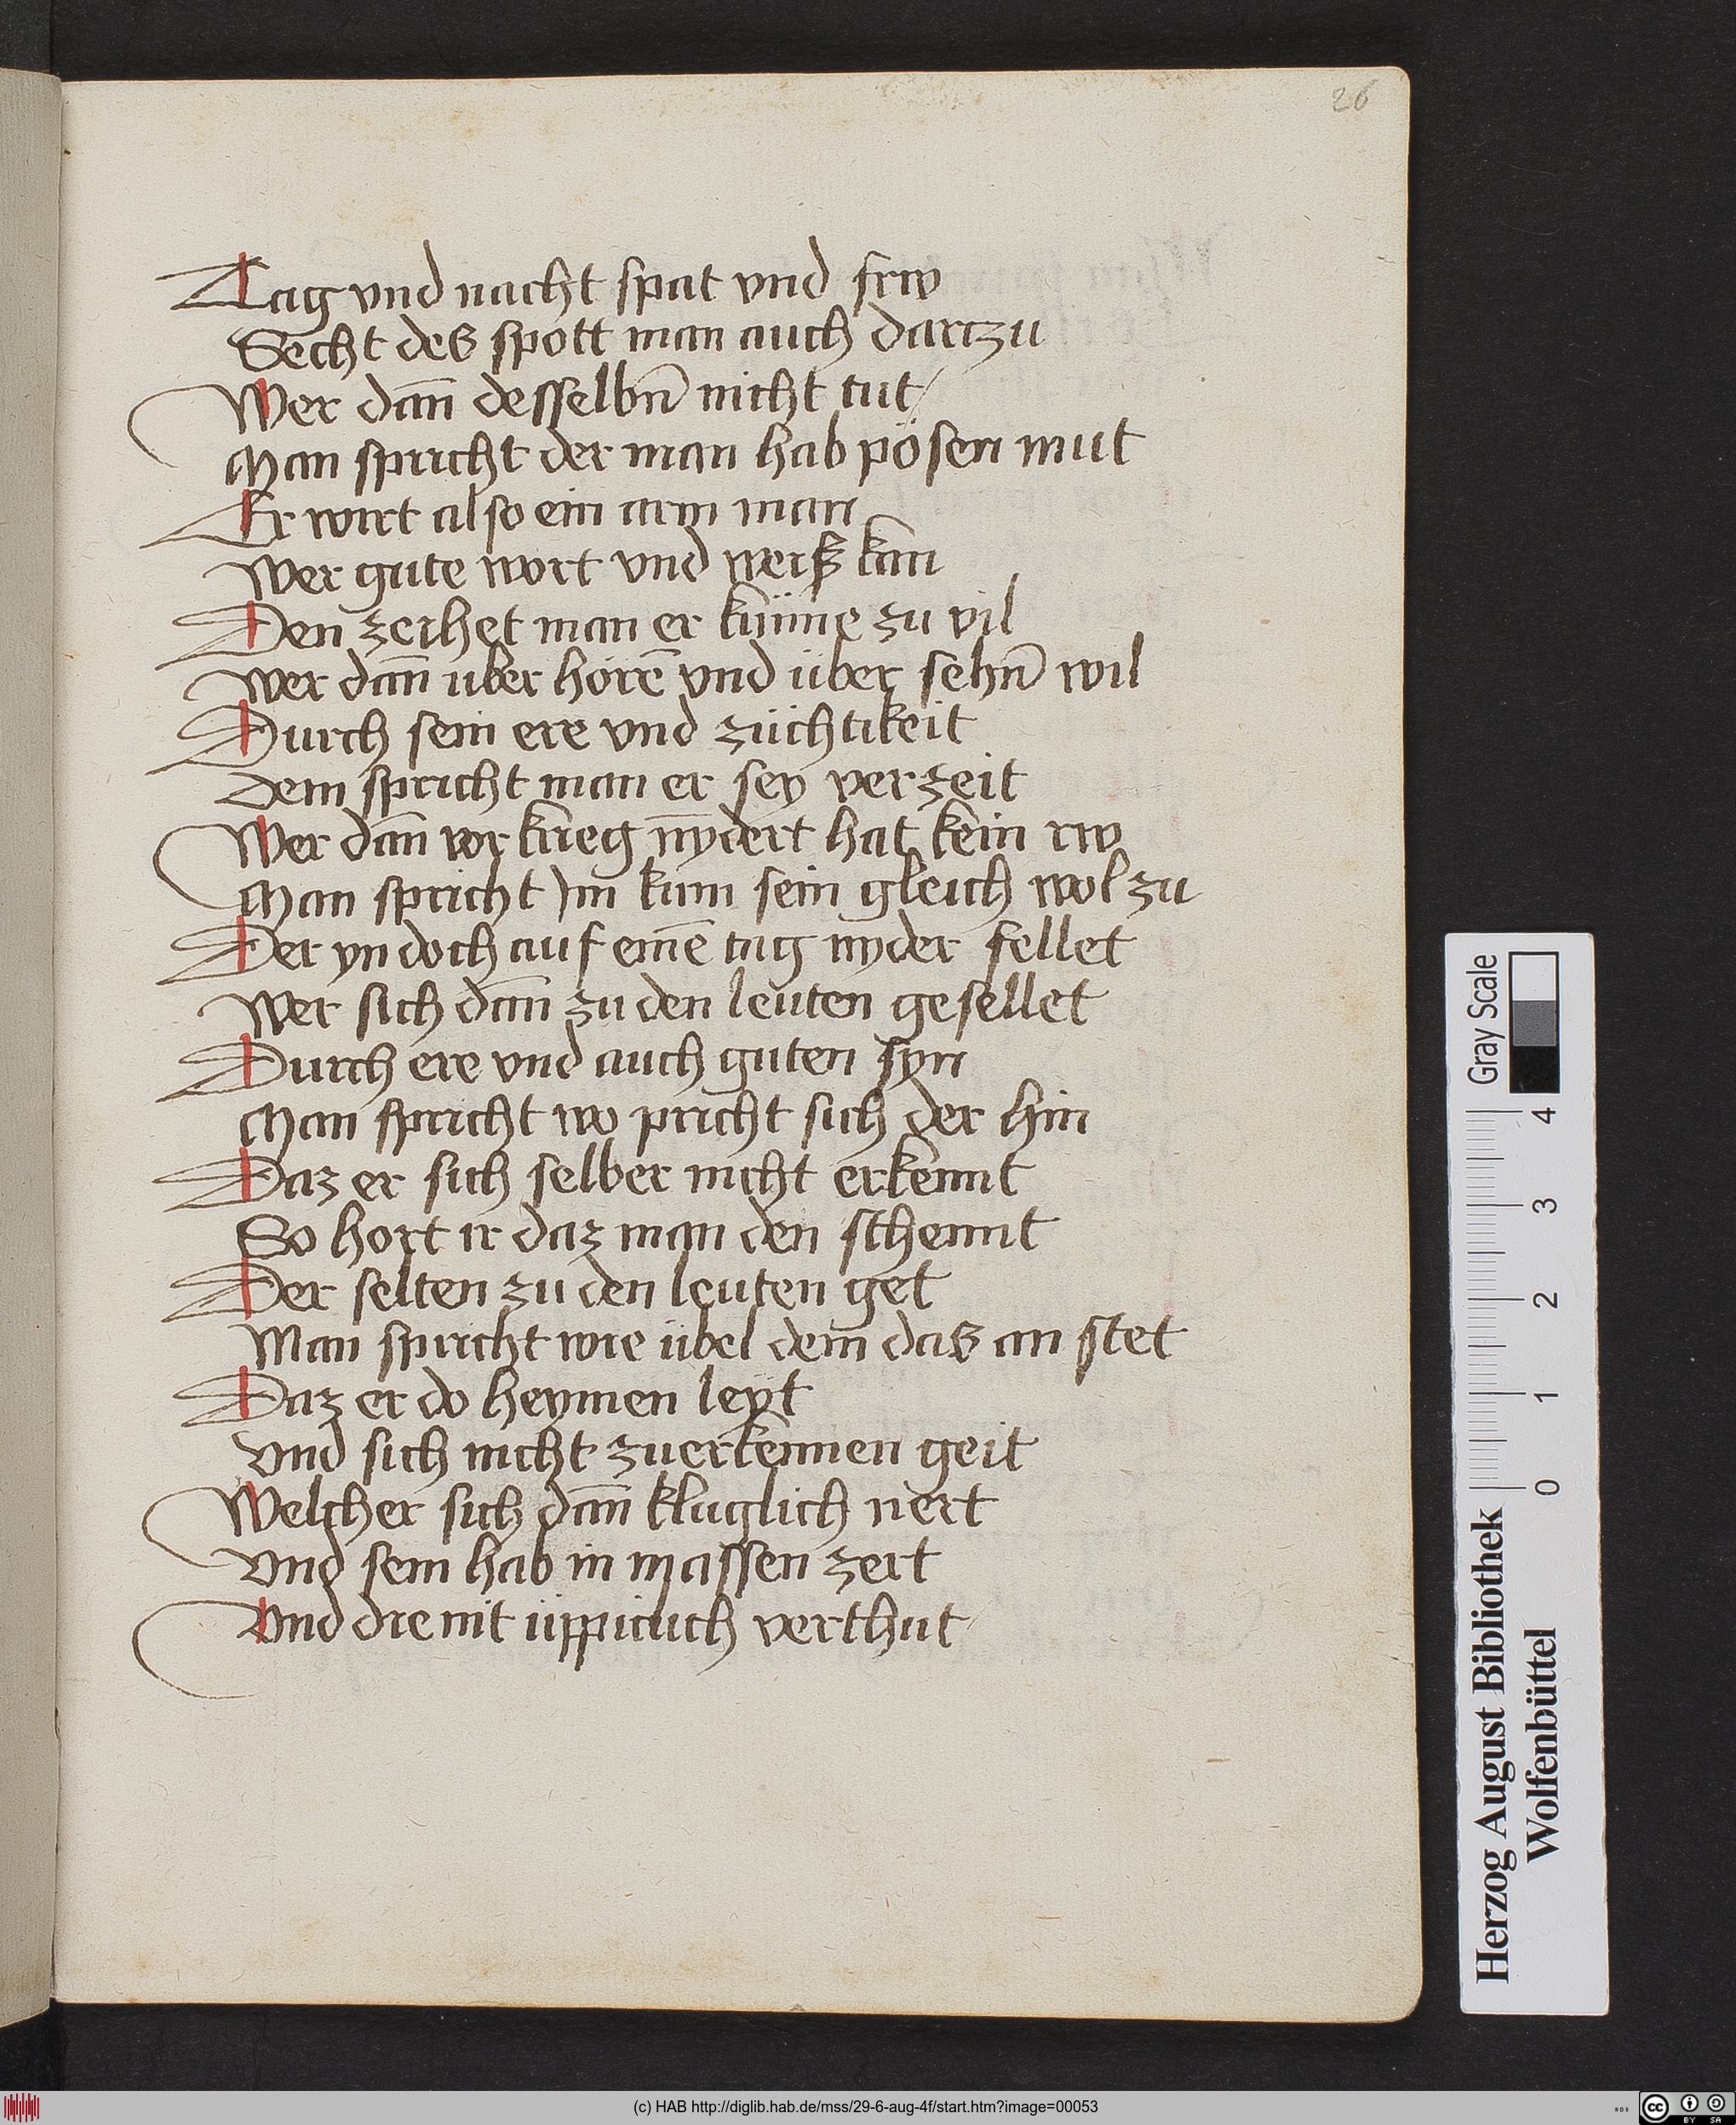 26
Tag vnd nacht spat vnd frw
Secht des spott man auch dartzu
Wer dan̄ desselbn̄ nicht tut
Man spricht der man hab pösen mut
Er wirt also ein arm man
Wer gute wort vnd weiß kan
Den zeihet man er künne zu vil
Wer dan̄ uber hörē vnd über sehn̄ wil
Durch sein ere vnd züchtikeit
Dem spricht man er sey verzeit
Wer dan̄ vor krieg nyd̄ert hat kein rw
Man spricht Im kum sein gleich wol zu
Der yn doch auf einē tag nyder fellet
Wer sich dan̄ zu den leuten gesellet
Durch ere vnd auch guten syn
Man spricht wo pricht sich der hin
Daz er sich selber nicht erkennt
So hort ir daz man den schennt
Der selten zu den leuten get
Man spricht wie übel dem das an stet
Daz er do heymen leyt
Vnd sich nicht zuerkennen geit
Welcher sich dan̄ kluglich nert
Vnd sein hab in massen zert
Vnd die nit üppiclich verthut
Gray Scale
0 1 2 3 4
Herzog August Bibliothek
Wolfenbüttel
(c) HAB http://diglib.hab.de/mss/29-6-aug-4f/start.htm?image=00053
cc BY SA